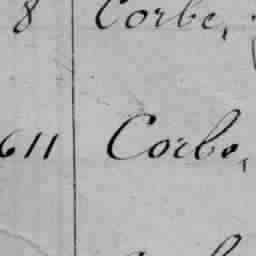 8 Corbe,
611 Corbo,